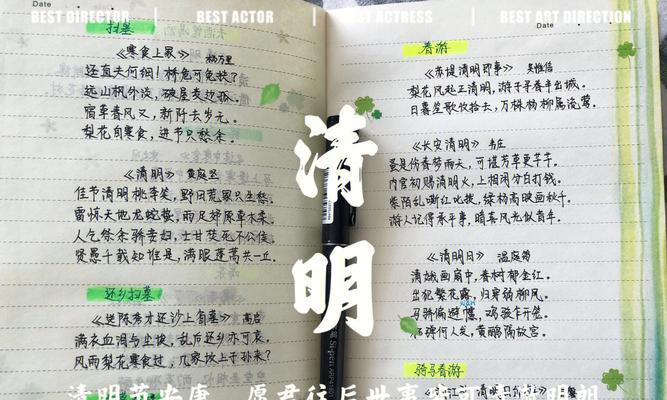 Date
BEST DIRECTOR
BEST ACTOR
BEST ACTRESS
BEST DIRECTION
扫墓
《寒食上冢》 杨万里
还直夫何细！桥危可免扶？
远山枫外淡，破屋麦边孤。
宿草春风又，新阡去岁无。
梨花自寒食，进节只愁余。
《清明》 黄庭坚
佳节清明桃李笑，野田荒冢只生愁。
雷惊天地龙蛇蛰，雨足郊原草木柔。
人乞祭余骄妾妇，士甘焚死不公侯。
贤愚千载知谁是，满眼蓬蒿共一丘。
还乡扫墓
《送陈秀才还沙上省墓》 高启
满衣血泪与尘埃，乱后还乡亦可哀。
风雨梨花寒食过，几家坟上子孙来？
清
明
Date
春游
《苏堤清明即事》 吴惟信
梨花风起正清明，游子寻春半出城。
日暮笙歌收拾去，万株杨柳属流莺。
《长安清明》 韦庄
蚤是伤春梦雨天，可堪芳草更芊芊。
内官初赐清明火，上相闲分白打钱。
紫陌乱嘶红叱拨，绿杨高映画秋千。
游人记得承平事，暗喜风光似昔年。
《清明日》 温庭筠
清娥画扇中，春树郁金红。
出犯繁花露，归穿弱柳风。
马骄偏避幰，鸡骇乍开笼。
柘弹何人发，黄鹂隔故宫。
骑马春游